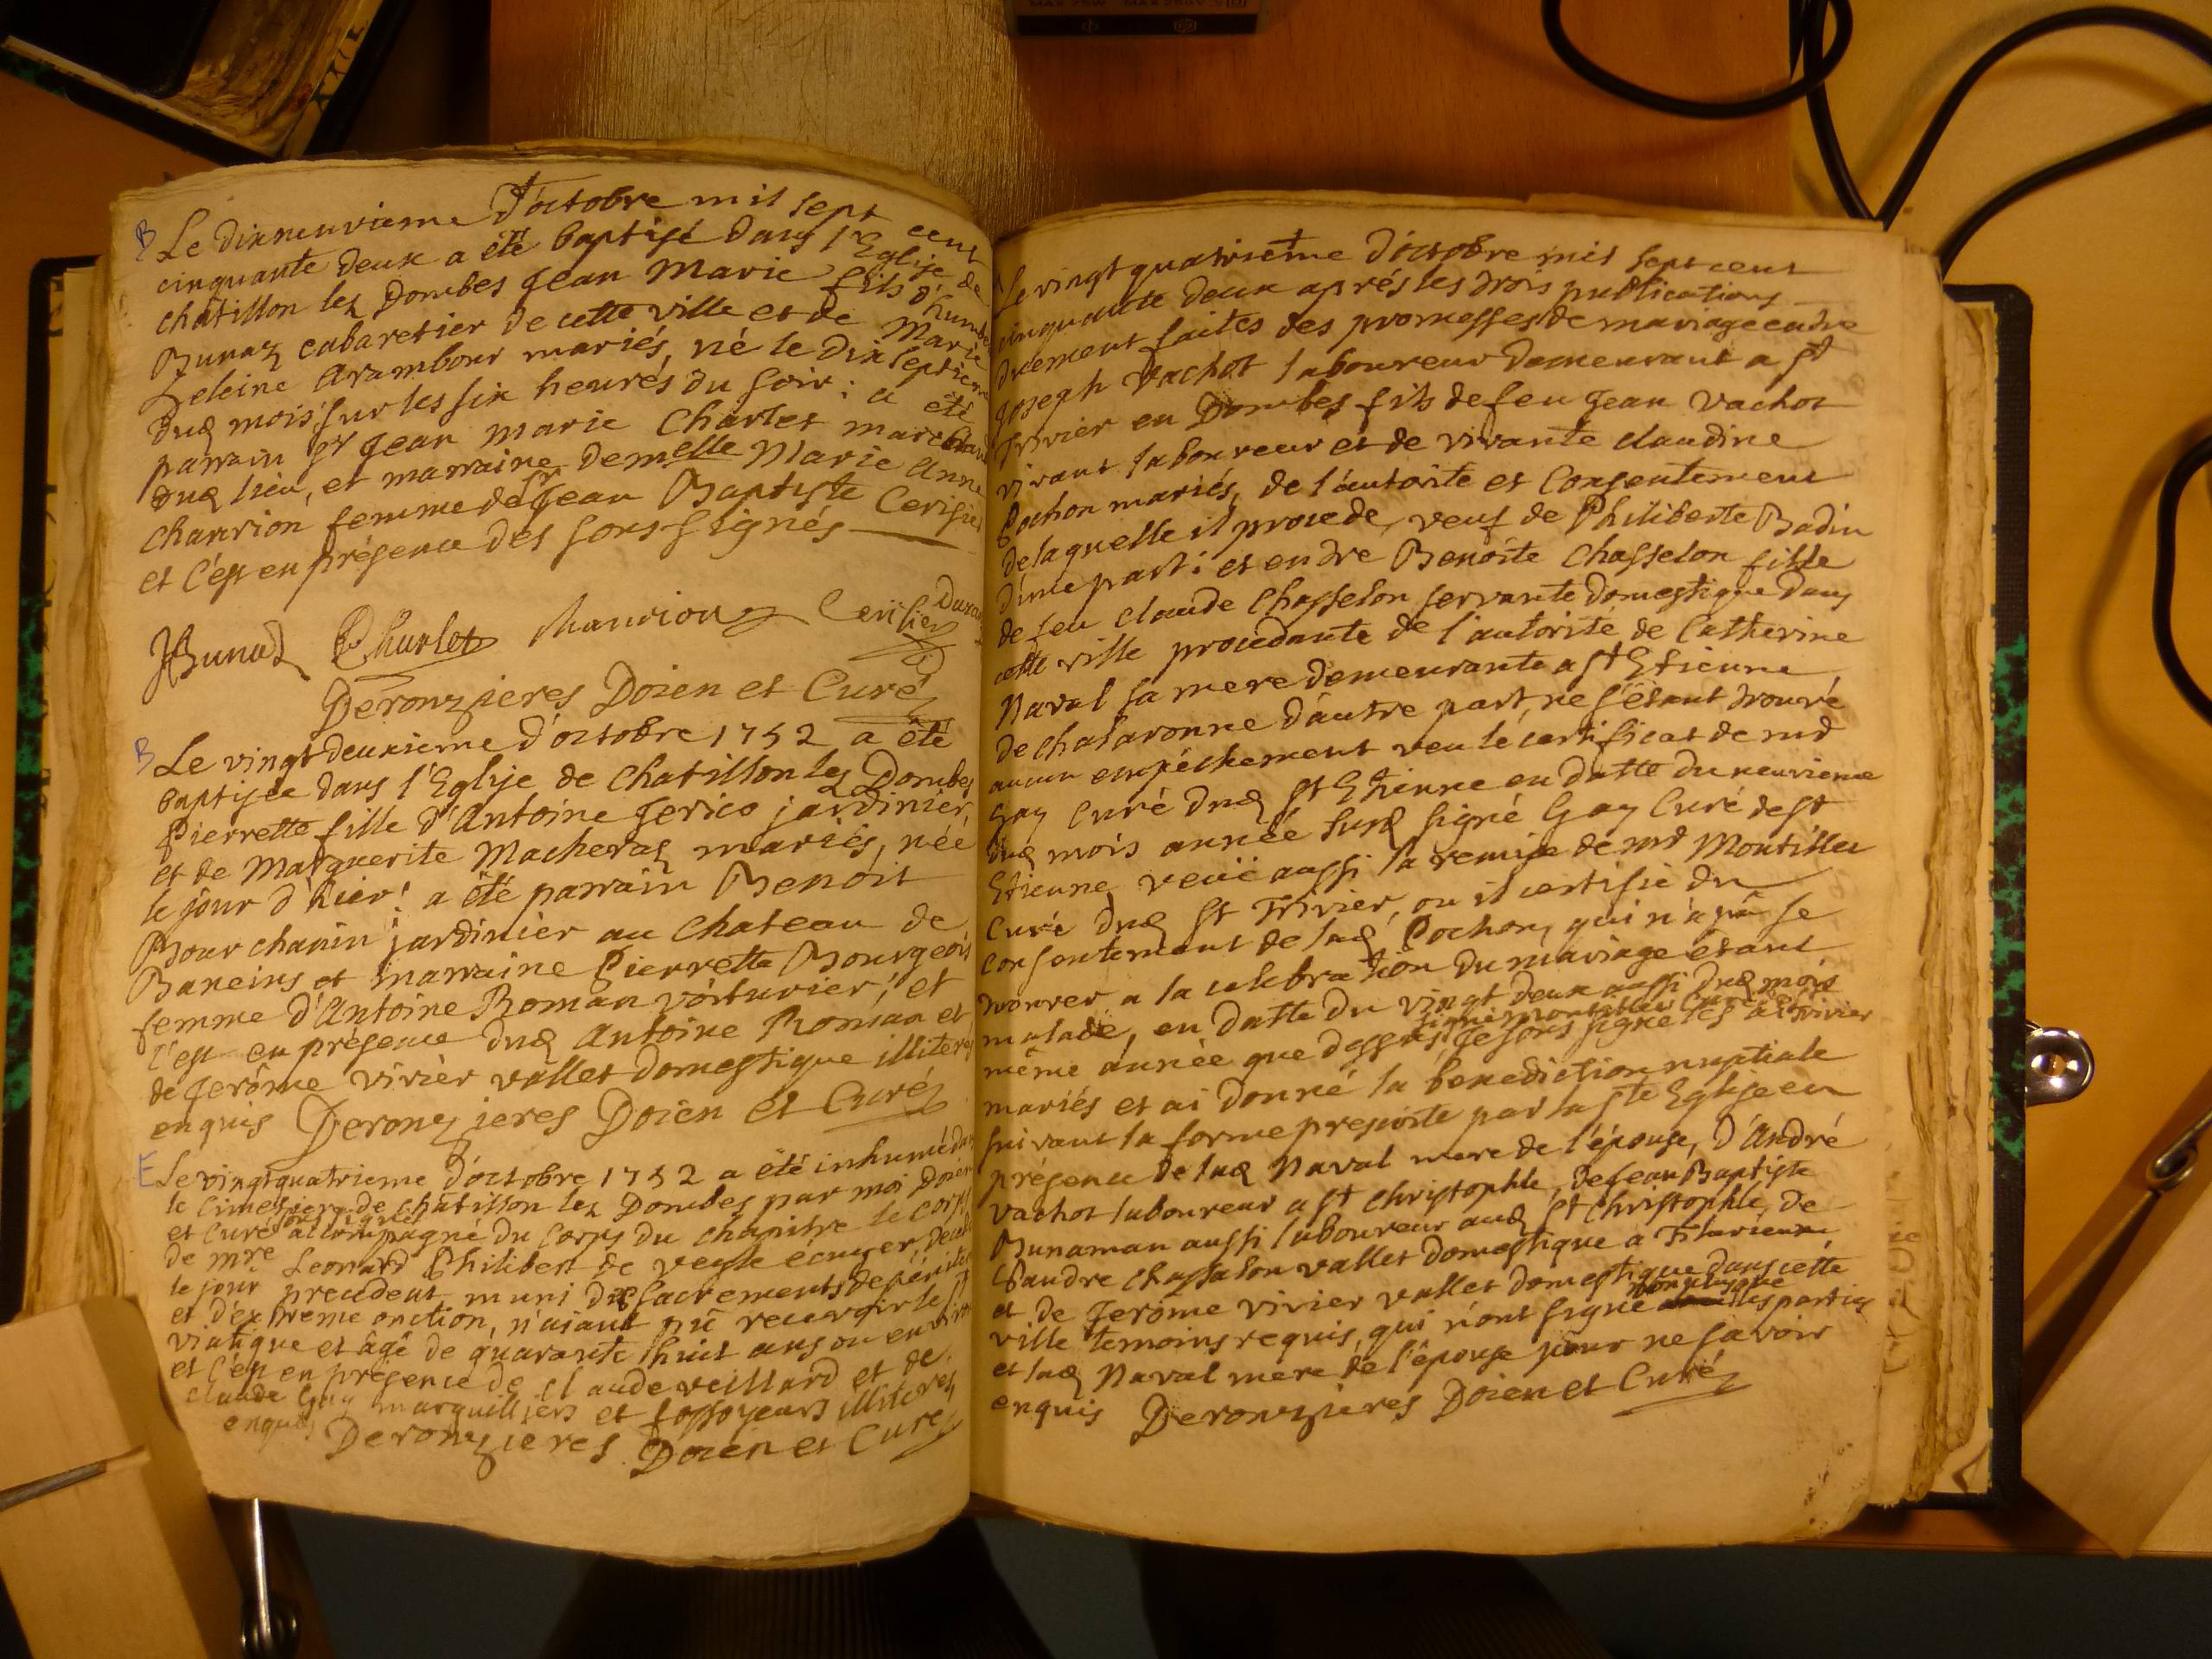 B Le dixneuvieme d'octobre mil sept cent
cinquante deux a été baptisé dans l'Eglise de
châtillon lez Dombes Jean Marie fils d'humbert
Bunaz cabaretier de cette ville et de Marie
heleine Arambour mariés, né le dix septieme
dud mois sur les six heurés du soir: a été
parrain sr Jean marie Charlet marchand
dud lieu, et marraine demelle Marie Anne
chanrion femme de sr Jean Baptiste Cerisier
et c'ést en présence dés soussignés
JBunad Charlet chanrion Cerisier
Deronzieres Doien et Curé
B Le vingtdeuxieme d'octobre 1752 a été
baptisée dans l'Eglise de Chatillon lez Dombes
Pierrette fille d'Antoine Jerico jardinier
et de Marguerite Macheraz mariés, néé
le jour d'hier: a été parrain Benoit
Bourchanin jardinier au Chateau de
Baneins et marraine Pierrette Bourgeois
femme d'Antoine Roman voiturier; et
c'est en présence dud Antoine Roman et
de Jerôme vivier vallet domestique illiterés
enquis Deronzieres Doien et Curé
E Le vingtquatrieme d'octobre 1752 a été inhumé dans
le cimetiere de châtillon lez Dombes par moi Doien
et Curé soussigné accompagné du corps du chapitre le corps
de mre Leonard Philibert de veyle ecuyer, decedé
le jour precedent muni des sacrements de pénitence
et d'extreme onction, n'aiant pû recevoir le st
viatique et âgé de quarante huit ans ou environ
et c'ést en présence de claude veillard et de
claude Guy marguilliers et fossoyeurs illiterés,
enquis Deronzieres Doien et Curé
Le vingt quatrieme d'octobre mil sept cent
cinquante deux aprés les trois publications
duement faites des promesses de mariage entre
Joseph Vachot laboureur demeurant a st
Trivier en Dombes fils de feu Jean Vachot
vivant laboureur et de vivante claudine
Pochon mariés, de l'autorité et Consentement
de laquelle il procede, veuf de Philiberte Badin
d'une part; et entre Benoite Chasselon fille
de feu claude Chasselon servante domestique dans
cette ville procedante de l'autorité de Catherine
Naval sa mere demeurante a st Etienne
de chalaronne d'autre part, ne s'étant trouvé
aucun empéchement veu le certificat de mr
Gay Curé dud st Etienne en datte du neuvieme
dud mois année susd signé Gay Curé de st
Etienne, veüe aussi la remise de mr Montillet
Curé dud st Trivier, ou il certifie du
consentement de lad Pochon, qui n'a pû se
trouver a la celebration du mariage étant
malade, en datte du vingt deux aussi dud mois
signé montillet Curé de st Trivier
même année que dessus, Je soussigné les ai
mariés et ai donné la benediction nuptiale
suivant la forme prescrite par la ste Eglise en
présence de lad Naval mere de l'épouse, d'André
Vachot laboureur a st Christophle, de Jean Baptiste
Bunaman aussi laboureur aud st Christophle, de
Claudre chassalon vallet domestique a
et de Jerôme vivier vallet domestique dans cette
ville temoins requis, qui n'ont signé non plus que les parties
et lad Naval mere de l'épouse pour ne savoir
enquis Deronzieres Doien et Curé